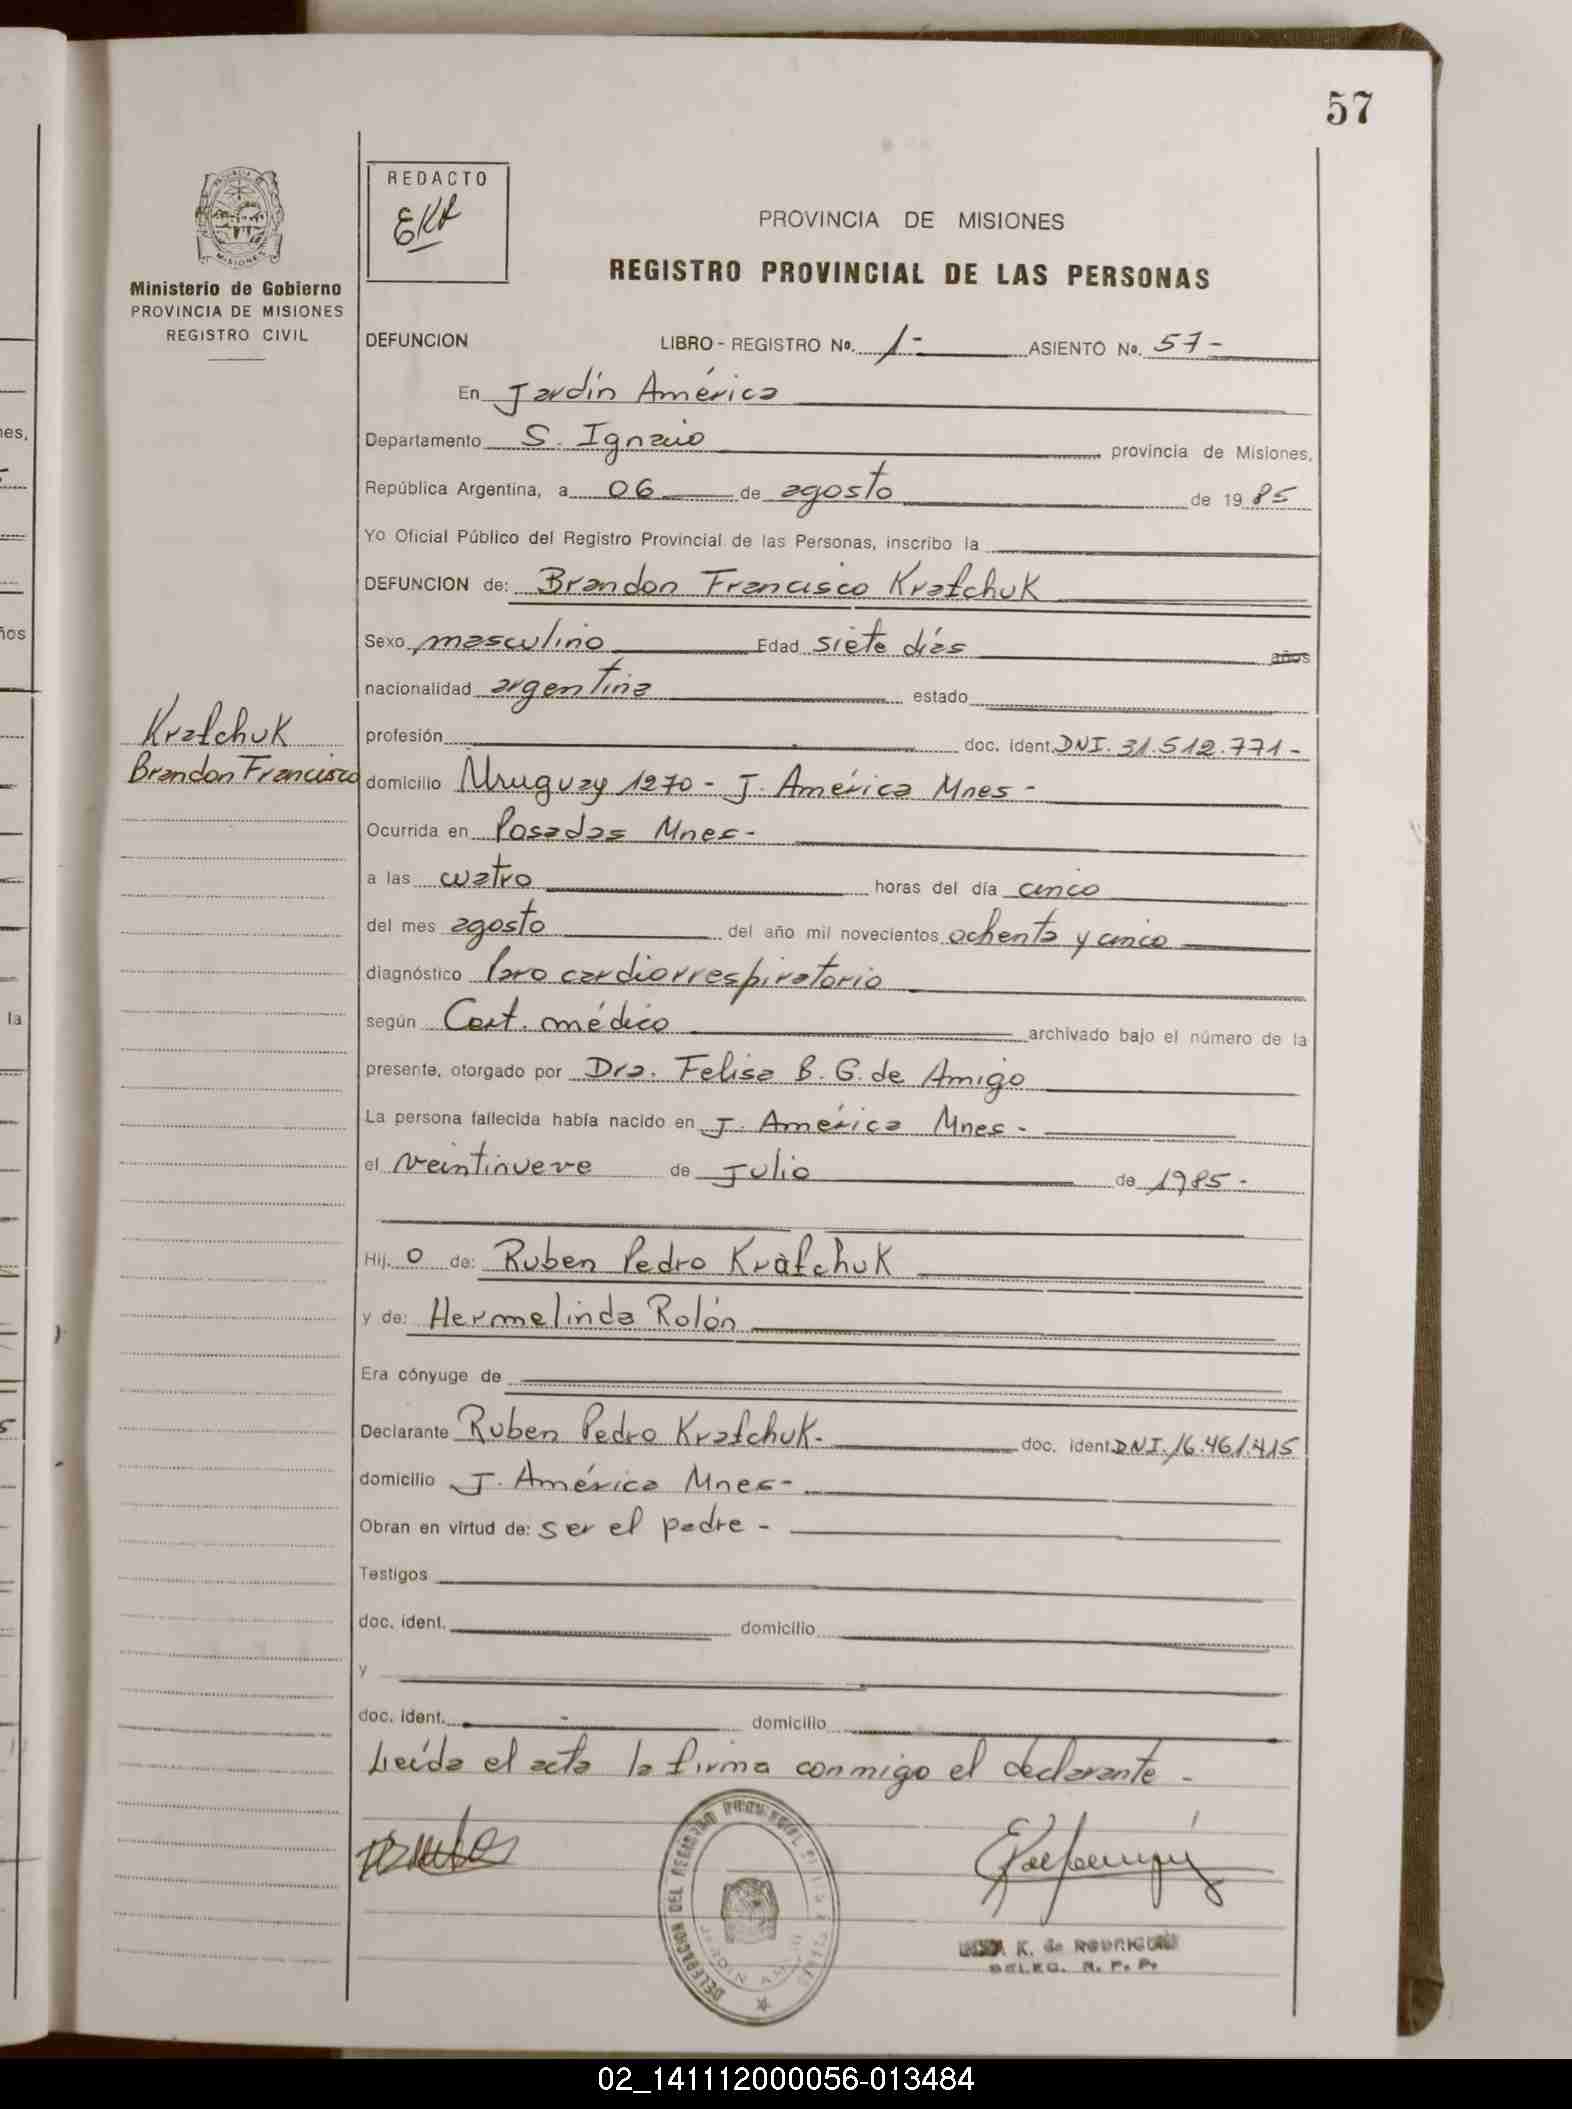 57
REDACTO
PROVINCIA DE MISIONES
REGISTRO PROVINCIAL DE LAS PERSONAS
Ministerio de Gobierno
PROVINCIA DE MISIONES
REGISTRO CIVIL
DEFUNCION LIBRO - REGISTRO Nº. 1 - ASIENTO Nº. 57 -
En Jardín América
Departamento S. Ignacio provincia de Misiones,
República Argentina, a 06 de agosto de 1985
Yo Oficial Público del Registro Provincial de las Personas, inscribo la
DEFUNCION de: Brandon Francisco Kratchuk
Sexo masculino Edad siete días años
nacionalidad argentina estado
Kratchuk
Brandon Francisco
profesión doc. ident. DNI. 31.512.771 -
domicilio Uruguay 1270 - J. América Mnes -
Ocurrida en Posadas Mnes -
a las cuatro horas del día cinco
del mes agosto del año mil novecientos ochenta y cinco
diagnóstico Paro cardiorrespiratorio
según Cert. médico archivado bajo el número de la
presente, otorgado por Dra. Felisa B. G. de Amigo
La persona fallecida había nacido en J. América Mnes -
el veintinueve de Julio de 1985 -
Hij. o de: Ruben Pedro Kratchuk
y de: Hermelinda Rolón
Era cónyuge de
Declarante Ruben Pedro Kratchuk - doc. ident. DNI. 16.461.415
domicilio J. América Mnes -
Obran en virtud de: ser el padre -
Testigos
doc. ident. domicilio
y
doc. ident. domicilio
Leída el acta la firma conmigo el declarante -
DELEGACION DEL REGISTRO PROVINCIAL
JARDIN AMERICA
K. de RODRIGUEZ
DELEG. R. P. P.
02_141112000056-013484